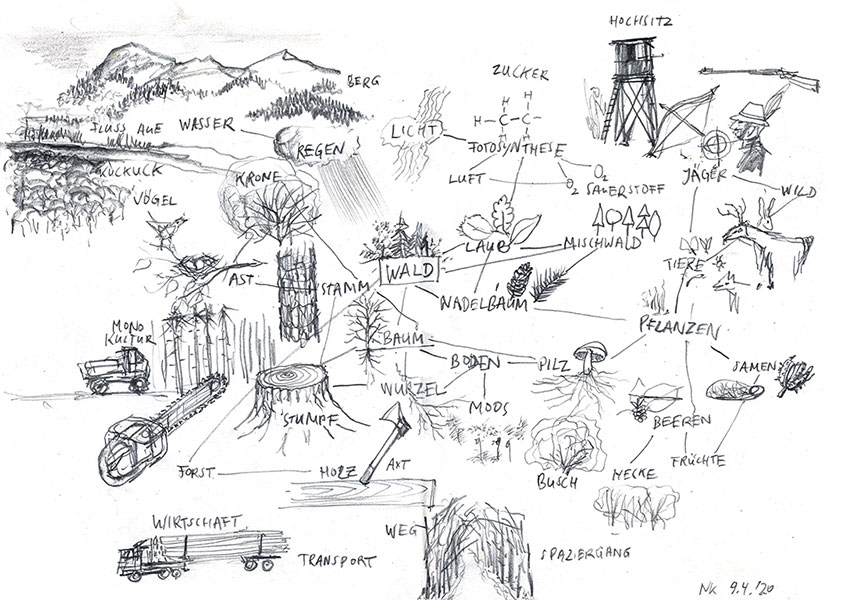 HOCHSITZ
ZUCKER
BERG
H
H
H - C - C -
H
FLUSS AUE WASSER
LICHT
REGEN
FOTOSYNTHESE
KUCKUCK
KRONE
LUFT
O2
O2 SAUERSTOFF
JÄGER
WILD
VÖGEL
LAUB
MISCHWALD
WALD
TIERE
AST
STAMM
NADELBAUM
PFLANZEN
MONO
KULTUR
BAUM
BODEN
PILZ
SAMEN
WURZEL
STUMPF
MOOS
BEEREN
FORST
HOLZ
AXT
BUSCH
HECKE
FRÜCHTE
WIRTSCHAFT
WEG
TRANSPORT
SPAZIERGANG
NK 9.4.'20